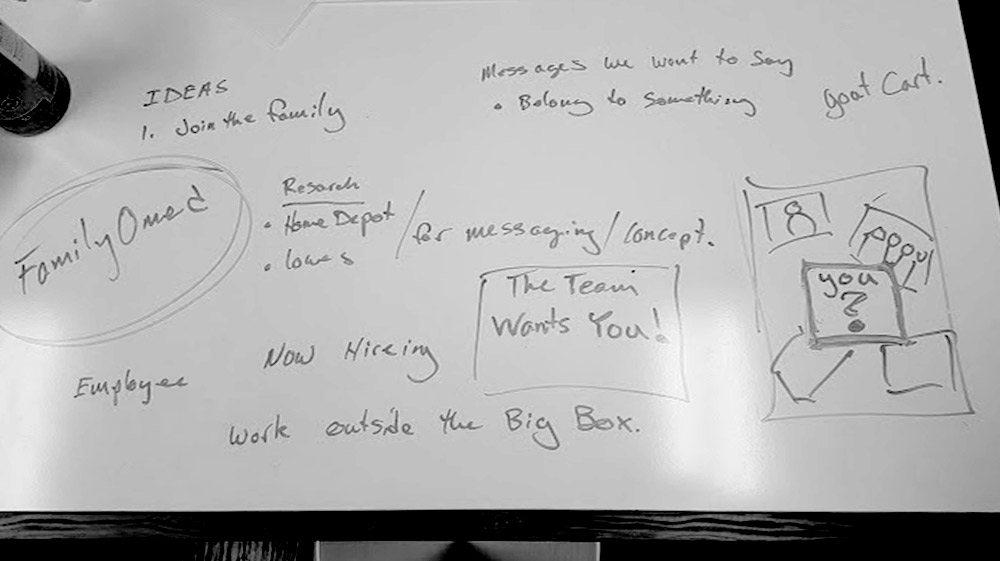 IDEAS
1. Join the family
Messages we want to say
• Belong to Something
goat Cart.
Family Owned
Resarch
• Home Depot
• Lowes
/ for messaging / concept.
The Team
Wants You!
you
?
Now Hireing
Employee
Work outside the Big Box.